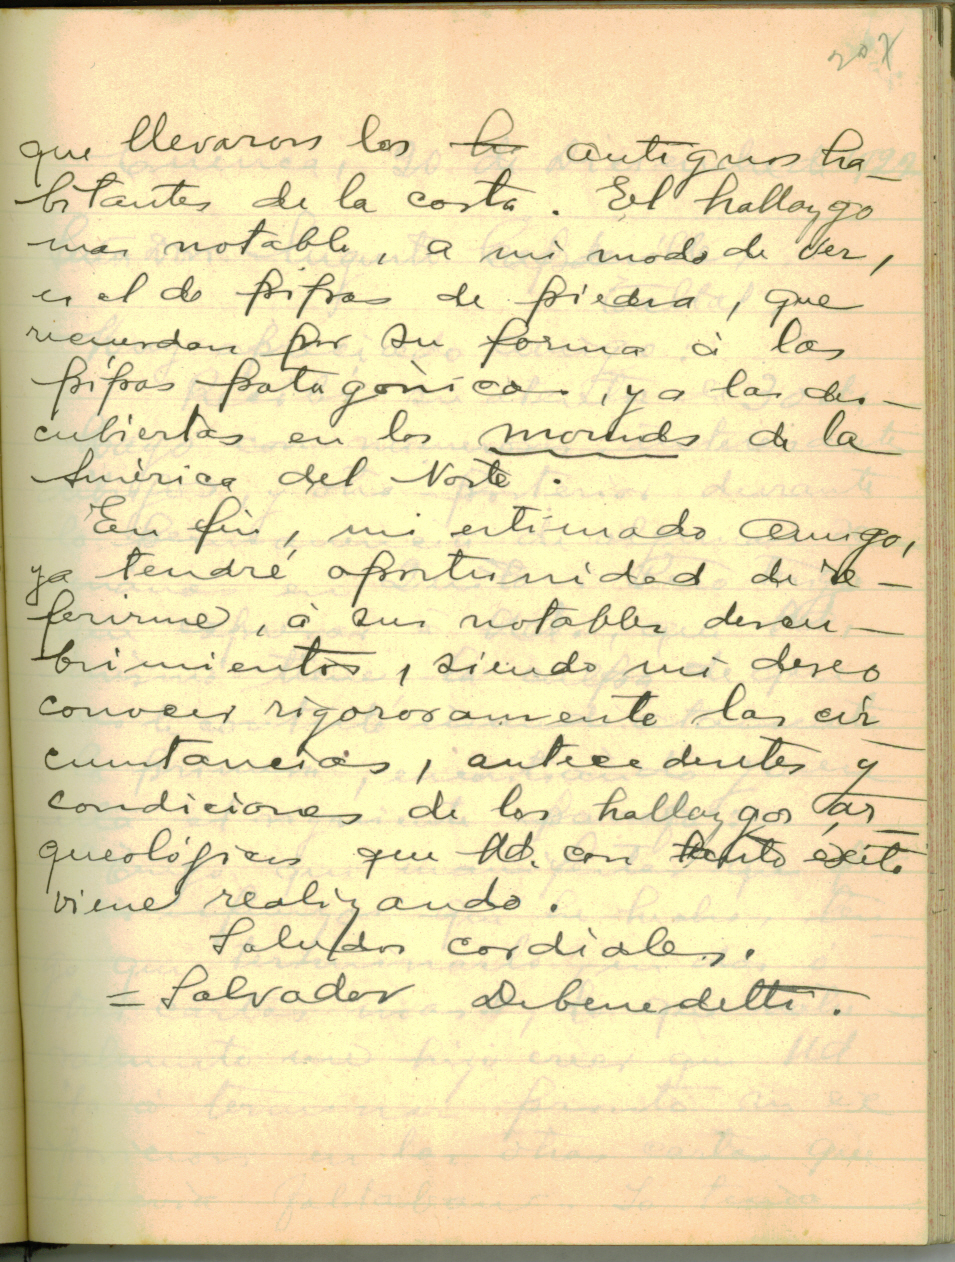 que llevaron los ha antiguos ha-
bitantes de la costa. El hallazgo
mas notable, a mi modo de ver,
es el de pipas de piedra, que
recuerdan por su forma á las
pipas patagónicas, y a las des-
cubiertas en los mounds de la
América del Norte.
En fin, mi estimado amigo,
ya tendré oportunidad de re-
ferirme, á sus notables descu-
brimientos, siendo mi deseo
conocer rigorosamente las cir
cunstancias, antecedentes y
condiciones de los hallazgos ar
queológicos que Ud. con tanto éxito
viene realizando.
Saludos cordiales.
= Salvador Debenedetti.